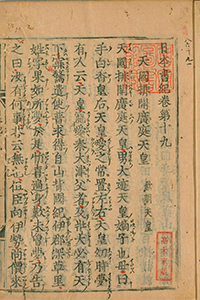 日本書紀卷第十九
天國排開廣庭天皇
欽明天皇
天國排開廣庭天皇男大迹天皇嫡子也母曰
手白香皇后天皇愛之常置左右天皇幼時夢
有人云天皇寵愛秦大津父者及壯大必有天
下寐驚遣使普求得自山背國紀伊郡深草里
姓字果如所夢於是忻喜遍身歎未曾夢乃告
之曰汝有何事荅云無也但臣向伊勢商價來